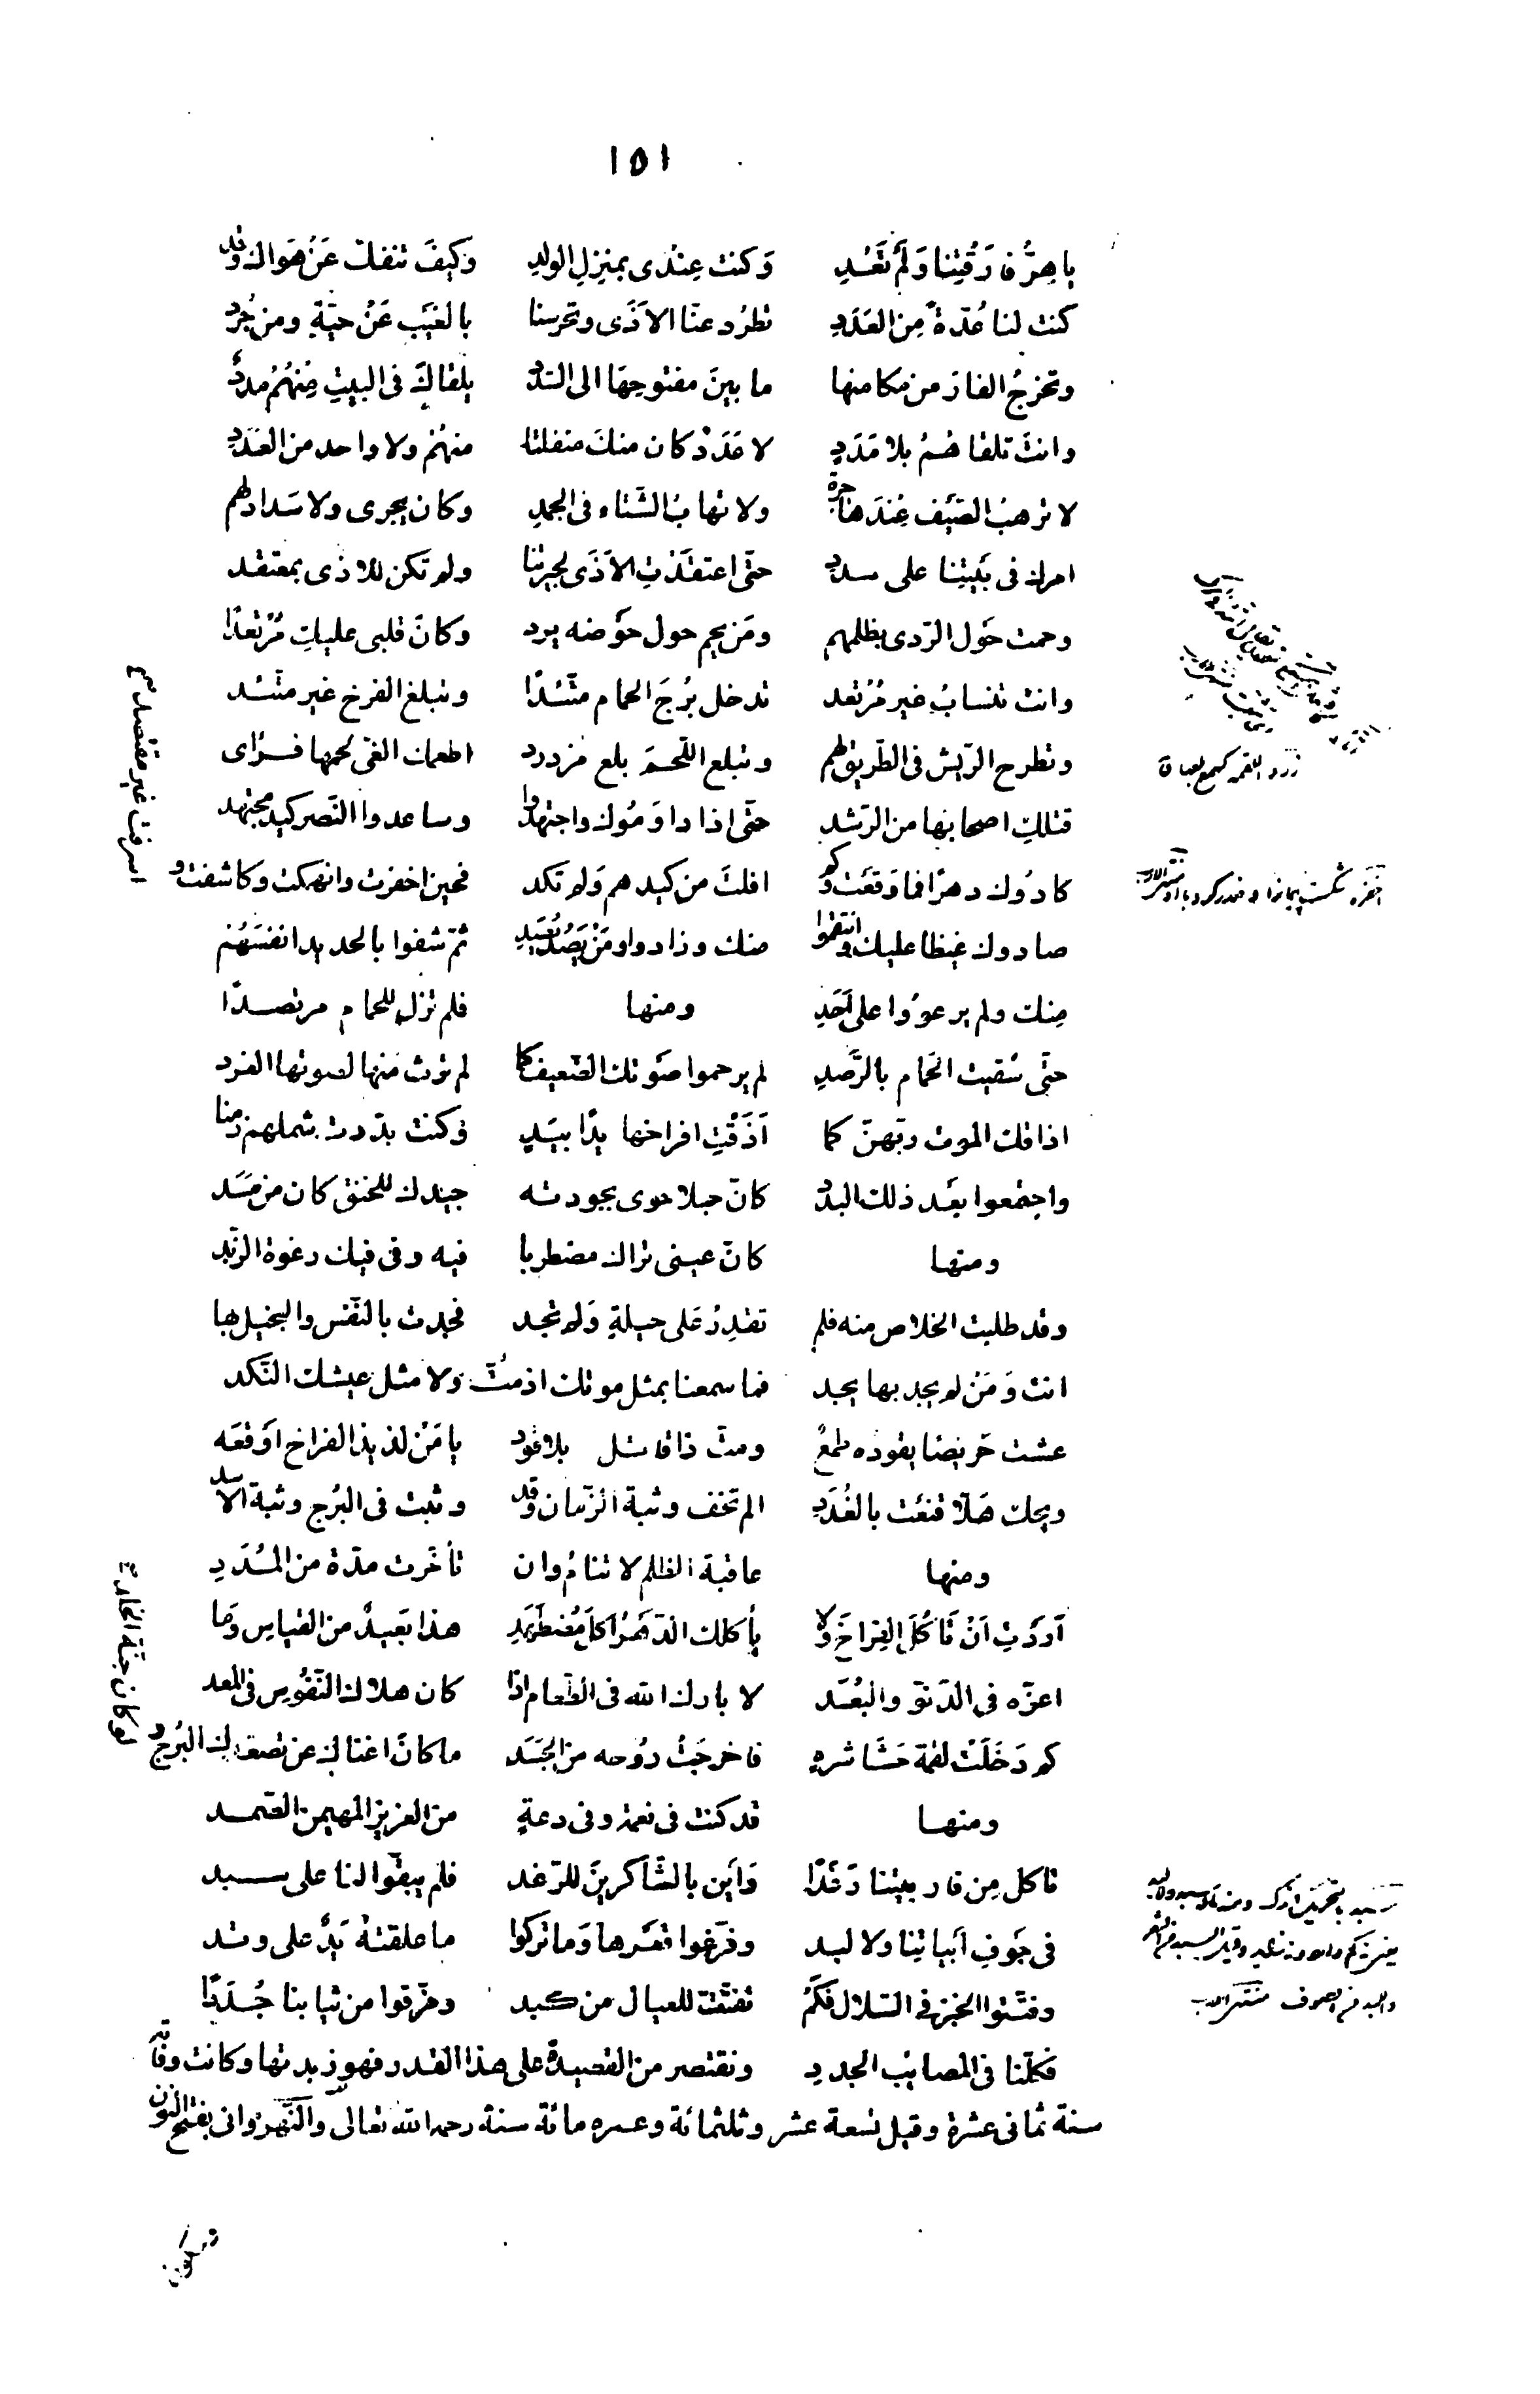 ١٥١
يا هِرُّ فارَقْتِنا وَلَم تَعُدِ وَكنت عِنْدى بمنزِلِ الولدِ وَكيفَ تنفك عَنْ هَواك وقد
كنت لنا عُدّةً مِن العُدَدِ تطرُد عنّا الاَذَى وتحرسنا بالغيَب عَنْ حيّةٍ ومن جُرد
وتخرجُ الفار من مكامنها ما بينَ مفتوحِهَا الى السّدد يلقاكَ فى البيتِ مِنهُمُ مددٌ
وانتَ تلقاهُمُ بلا مَدَدٍ لا عَدَدٌ كان منك منفلتا منهُم ولا واحد من العَدَدِ
لا ترهبُ الصّيَف عِندَ هاجرة ولا تهابُ الشّتاء فى الجمدِ وكان يجرى ولا سَداد لهم
امرك فى بَيتِنا على سددٍ حتّى اعتقَدْتِ الاَذَى لجيرتنا ولم تكن للاذى بمعتقد
وحمت حَول الرّدى بظلمهم ومَن يحم حول حَوضه يرد وكانَ قلبى عليك مُرْتعدًا
وانت تنسابُ غير مُرْتعد تدخل بُرجَ الحمام متّئدًا وتبلغ الفرخ غير متّئد
وتطرح الرّيش فى الطّريق لهم وتبلع اللّحمَ بلع مزدرد اطعمك الغىّ لحمها فرأى
قتلكِ اصحابها من الرّشد حتّى اذا داوَمُوك واجتهدوا وساعدوا النّصر كيد مجتهد
كادُوك دهرًا فما وَقَعَت وكم افلتَ من كيدهم وَلم تكد فحين اخفرت وانهمكت وكاشفت و
صادوك غيظا عليك وانتقموا منك وزادوا ومَنْ يَصُد يُصَدِ ثمّ شفوا بالحديد انفسَهُم
مِنك ولم يرعوُوا على اَحَدِ ومنها فلم تزل للحمام مرتصدًا
حتّى سُقيت الحَمام بالرَّصدِ لم يرحموا صَوتك الضّعيف كما لم ترث منها لصوتها الغرد
اذاقك الموت ربّهنّ كما اَذَقْتِ افراخها يدًا بيَدٍ وكنت بدّدت شملهم زمنا
واجتمعوا بعَد ذلك البدد كانّ حبلا حوى بجودته جيدك للخنق كان من مَسَد
ومنها كانّ عينى تراك مضطربا فيه وفى فيك رغوة الزّبد
وقد طلبت الخلاص منه فلم تقدِرُ عَلى حيلةٍ وَلم تجد فجدت بالنّفس والبخيل بها
انت وَمَنْ لم يجد بها يجد فما سمعنا بمثل موتك اذ متّ ولا مثل عيشك النّكد
عشت حَريصًا يقوده طمعٌ ومتّ ذا قاتل بلا قود يا مَنْ لذيذ الفراخ اَوقعَه
ويحك هَلّا قنعَت بالغُدَدِ الم تخف وثبة الزّمان وقد وثبت فى البُرج وثبة الاسد
ومنها عاقبة الظلم لا تنامُ وان تأخّرت مدّة من المُدَدِ
اَرَدَتَ اَنْ تَأكُلَ الفِراخَ ولا يأكلك الدّهَرُ اَكلَ مُضْطَهَدِ هذا بَعيدٌ من القياس وَما
اعزّه فى الدّنوّ والبُعَد لا بارك الله فى الطّعام اذا كان هلاك النّفُوسِ فى المعد
كم دَخَلَتْ لقمة حَشَا شرهٍ فاخرجَتْ رُوْحه من الجسَد ما كانَ اغناك عن تصعّدك البُرج و
ومنها قد كنت فى نعمة وفى دعةٍ من العزيز المهيمن الصّمد
تاكل مِن فار بيتنا رَغَدًا وَاَين بالشّاكرينَ للرّغد فلم يبقّوا لنا على سبد
فى جَوفِ اَبياتنا ولا لبد وفرّغوا قعَرها وَما تركوا ما علقتهُ يَدٌ على وتد
وفتّتوا الخبز فى السّلال فكَمْ تفتّت للعيال من كبد ومزّقوا من ثيابنا جُدَدًا
فكلّنا فى المصايب الجددِ ونقتصر من القصيدة على هذا القدر فهو زبدتها وكانت وفاته
سنة ثمانى عشرة وقيل تسعة عشر وثلثمائة وعمره مائة سنة رحمه الله تعالى والنّهروانى بفتح النّون
وسكون
اسرفت غير مقتصد
زرد اللقمه كسمع
لو كان جنّة الخلد